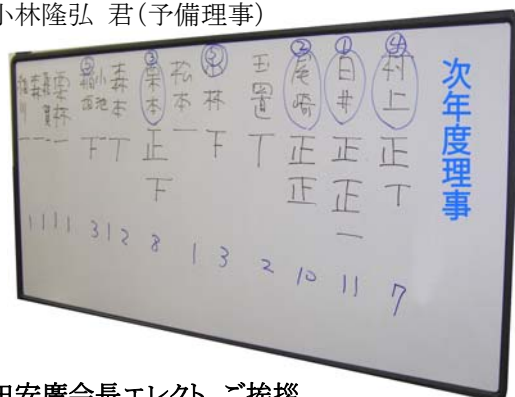 小林隆弘 君（予備理事）
次年度理事
④ 村上 正丅 7
① 臼井 正正一 11
② 尾崎 正正 10
玉置 丅 2
⑤ 小林 下 3
松本 一 1
③ 栗本 正下 8
森本 丅 2
小池 1
下 3
栗林 一 1
一 1
森 一 1
一 1
田安廣会長エレクト ご挨拶